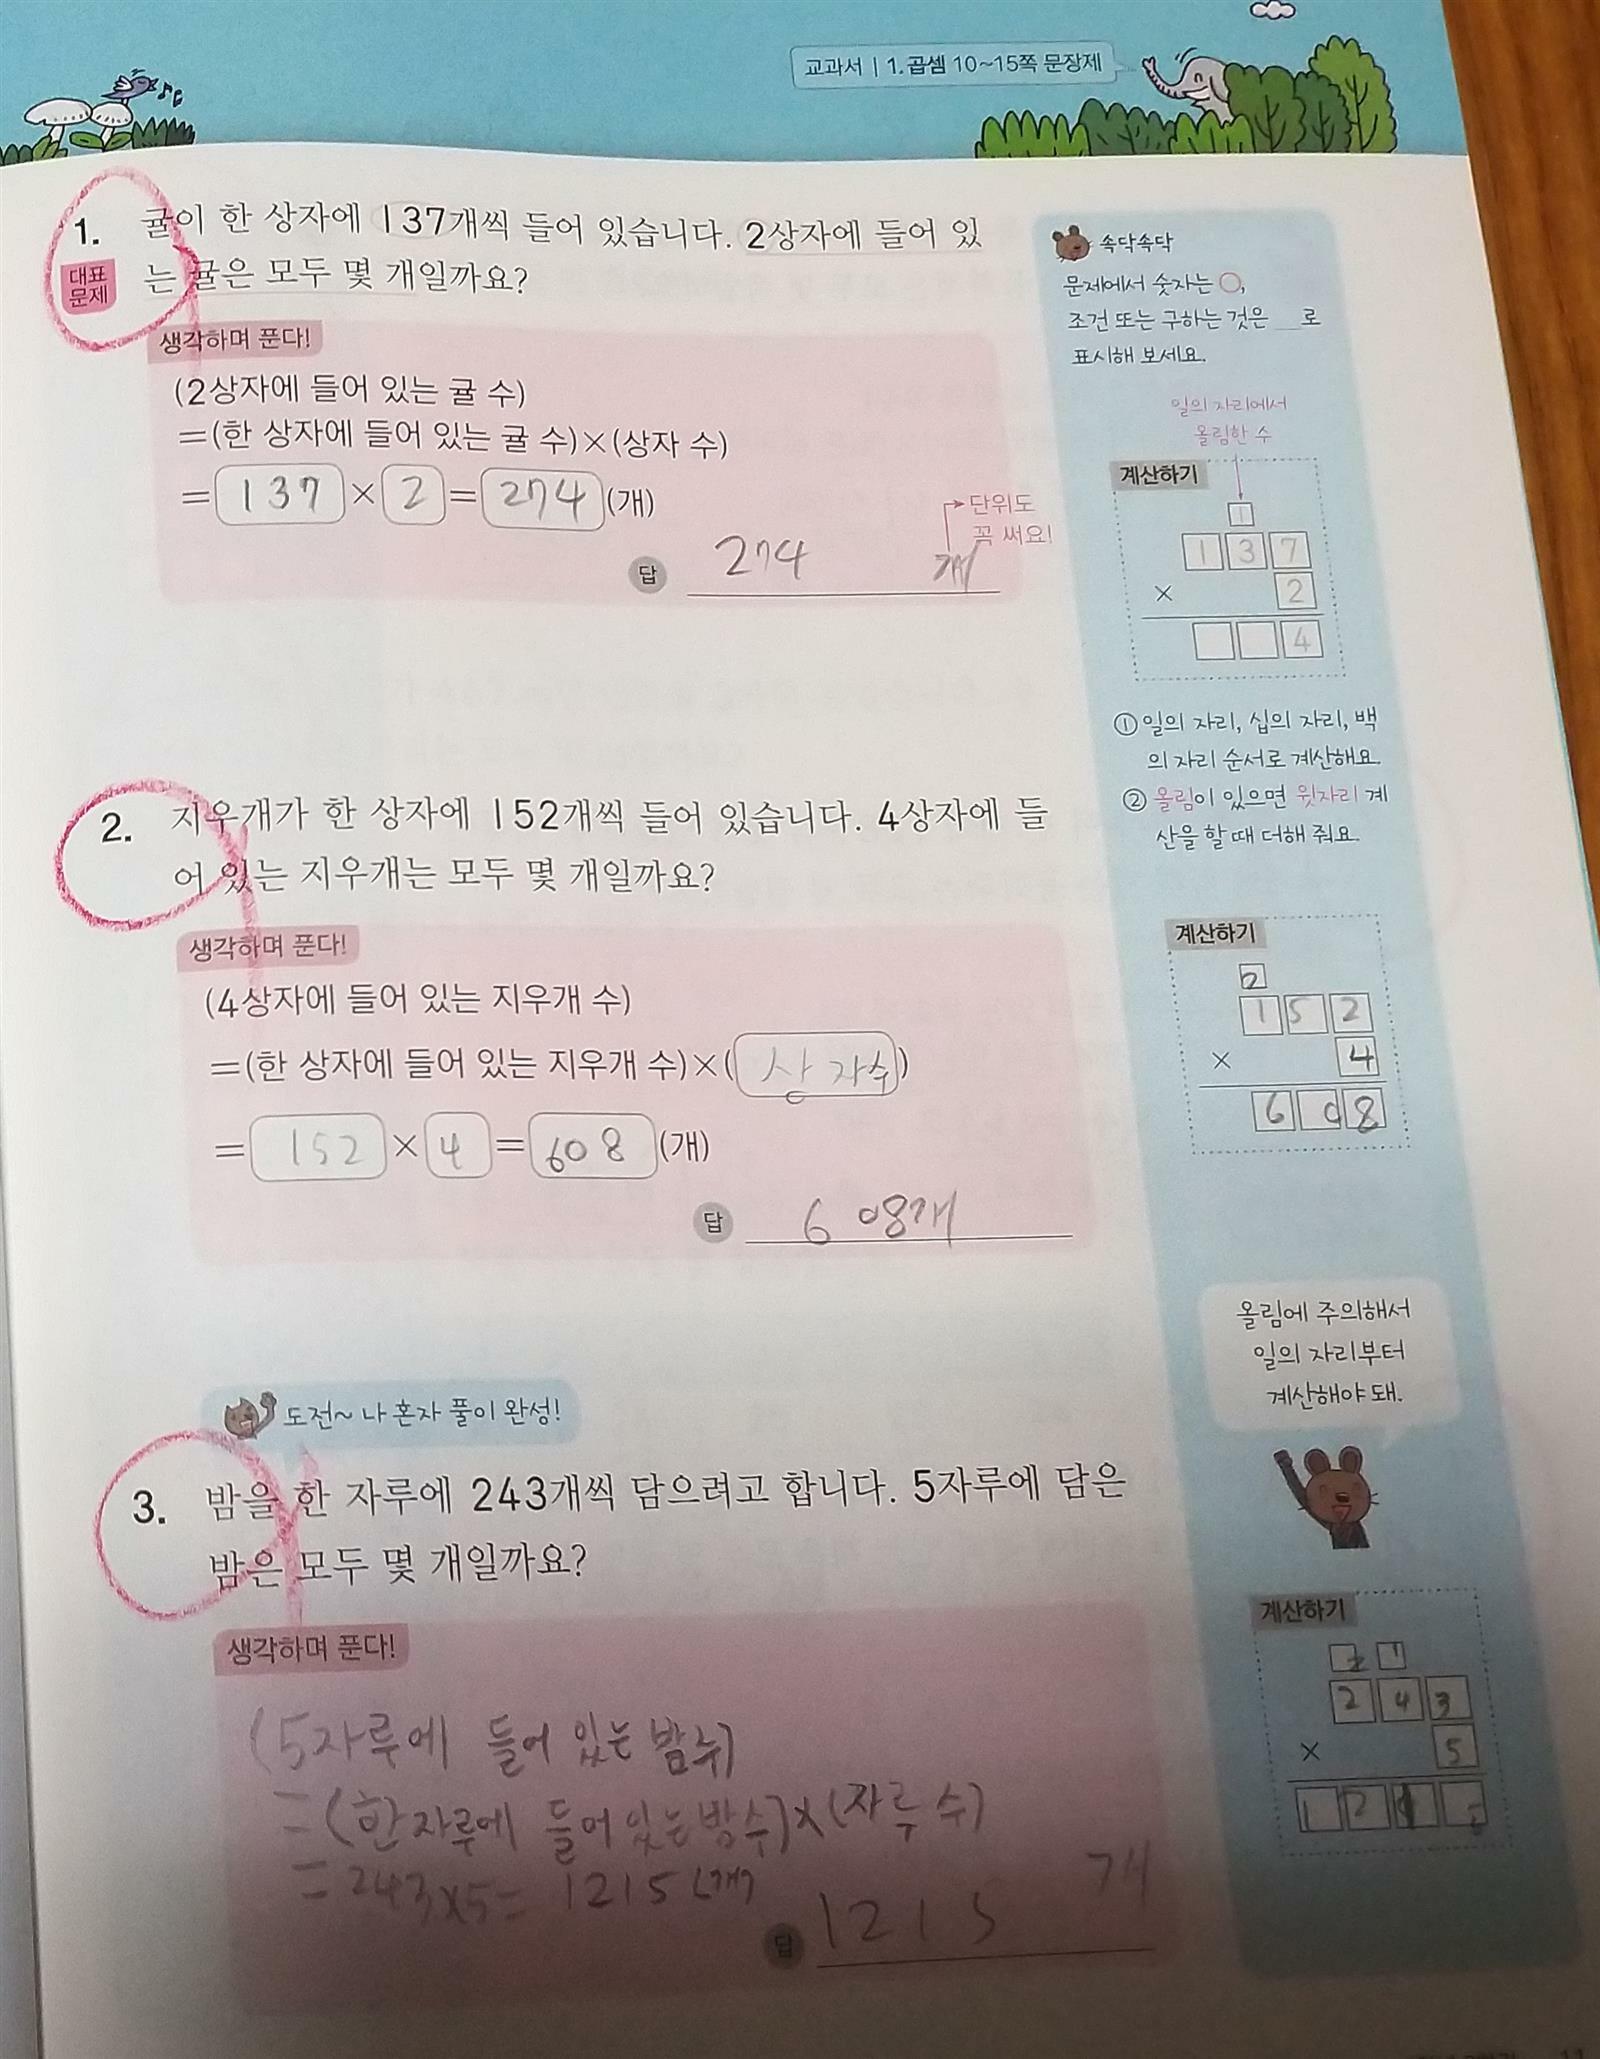 교과서 | 1. 곱셈 10~15쪽 문장제
1. 귤이 한 상자에 137개씩 들어 있습니다. 2상자에 들어 있
대표
문제
는 귤은 모두 몇 개일까요?
생각하며 푼다!
(2상자에 들어 있는 귤 수)
=(한 상자에 들어 있는 귤 수)×(상자 수)
= 137 × 2 = 274 (개)
단위도
꼭 써요!
답 274 개
속닥속닥
문제에서 숫자는 ○,
조건 또는 구하는 것은 __로
표시해 보세요.
일의 자리에서
올림한 수
계산하기
1
1 3 7
× 2
4
① 일의 자리, 십의 자리, 백
의 자리 순서로 계산해요.
② 올림이 있으면 윗자리 계
산을 할 때 더해 줘요.
2. 지우개가 한 상자에 152개씩 들어 있습니다. 4상자에 들
어 있는 지우개는 모두 몇 개일까요?
생각하며 푼다!
(4상자에 들어 있는 지우개 수)
=(한 상자에 들어 있는 지우개 수)×(상자수)
= 152 × 4 = 608 (개)
답 608개
계산하기
2
1 5 2
× 4
6 0 8
올림에 주의해서
일의 자리부터
계산해야 돼.
도전~ 나 혼자 풀이 완성!
3. 밤을 한 자루에 243개씩 담으려고 합니다. 5자루에 담은
밤은 모두 몇 개일까요?
생각하며 푼다!
(5자루에 들어 있는 밤수)
=(한자루에 들어있는밤수)×(자루 수)
=243×5= 1215(개)
답 1215 개
계산하기
2 1
2 4 3
× 5
1 2 1 5